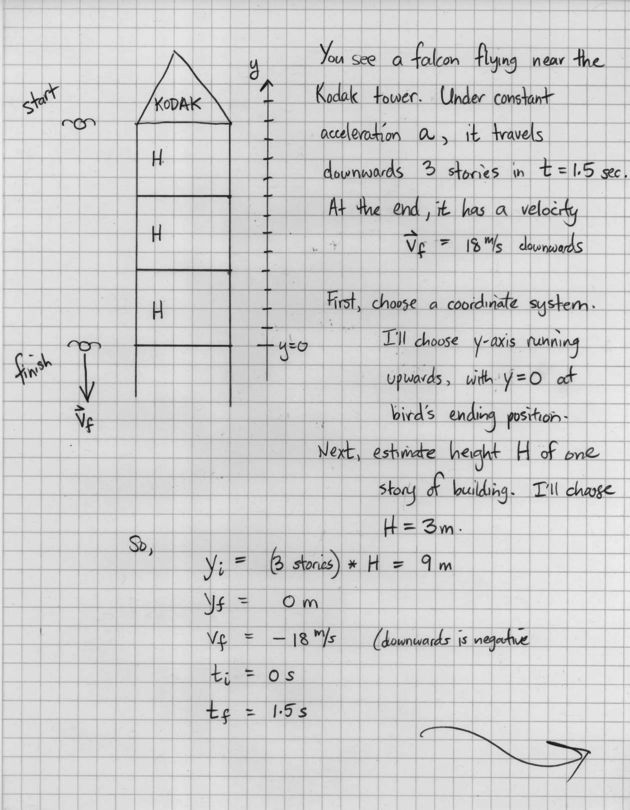 You see a falcon flying near the
Kodak tower. Under constant
acceleration a, it travels
downwards 3 stories in t = 1.5 sec.
At the end, it has a velocity
v⃗f = 18 m/s downwards
start
KODAK
y
H
H
H
y=0
finish
v⃗f
First, choose a coordinate system.
I'll choose y-axis running
upwards, with y=0 at
bird's ending position.
Next, estimate height H of one
story of building. I'll choose
H = 3m.
So,
yi = (3 stories) * H = 9 m
yf = 0 m
vf = - 18 m/s (downwards is negative
ti = 0 s
tf = 1.5 s